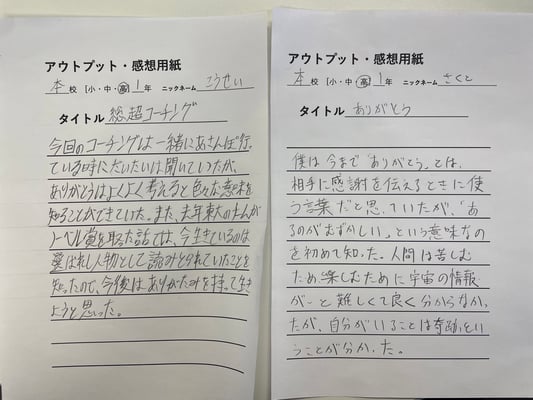 アウトプット・感想用紙
本校 [小・中・高] 1年 ニックネーム こうせい
タイトル 総超コーチング
今回のコーチングは一緒にあさんぽ行っ
ている時にだいたいは聞いていたが、
ありがとうはよくよく考えると色々な意味を
知ることができていた。また、去年東大の
ノーベル賞を取った話では、今生きているのは
選ばれし人物として読みとられていたことを
知ったので、今後はありがたみを持って生き
ようと思った。
アウトプット・感想用紙
本校 [小・中・高] 1年 ニックネーム さくと
タイトル ありがとう
僕は今まで「ありがとう」とは、
相手に感謝を伝えるときに使
う言葉だと思っていたが、「あ
るのがむずかしい」という意味なの
を初めて知った。人間は苦しむ
ため楽しむために宇宙の情報
が…と難しくて良く分からなかっ
たが、自分がいることは奇跡とい
うことが分かった。